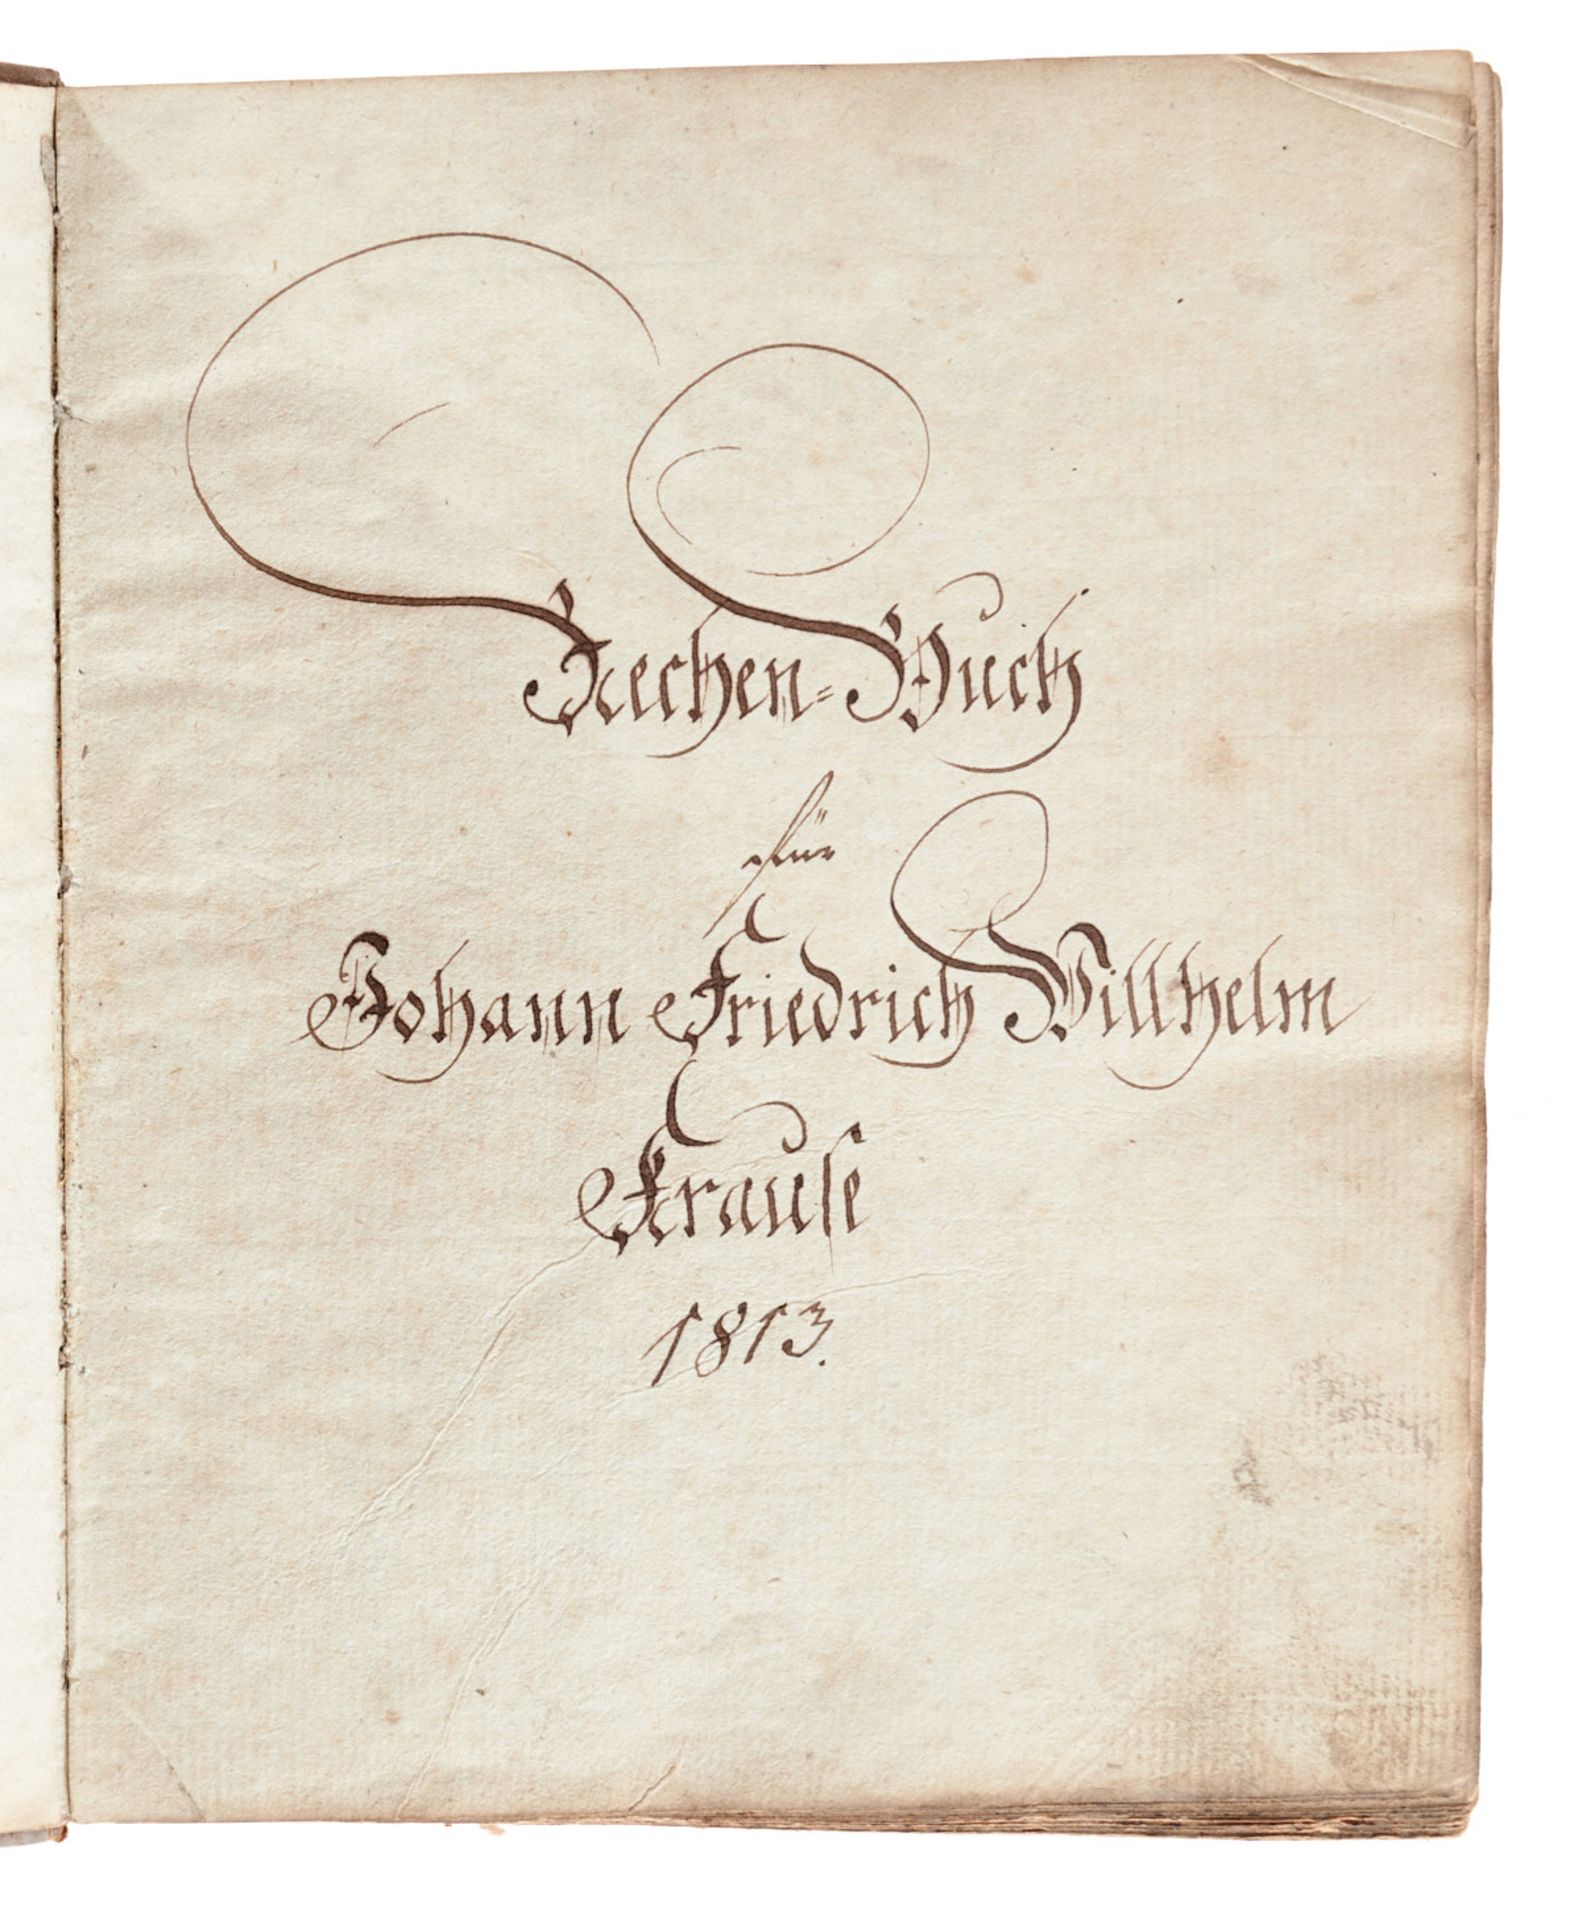 Rechen=Buch
für
Johann Friedrich Willhelm
Krause
1813.